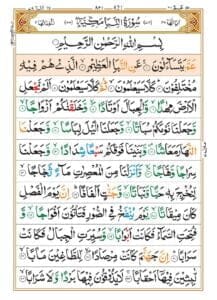 سُوْرَةُ النَّبَاِ مَكِّيَّةٌ
بِسْمِ اللّٰهِ الرَّحْمٰنِ الرَّحِيْمِ
عَمَّ يَتَسَآءَلُوْنَ ۝ عَنِ النَّبَاِ الْعَظِيْمِ ۝ الَّذِيْ هُمْ فِيْهِ
مُخْتَلِفُوْنَ ۝ كَلَّا سَيَعْلَمُوْنَ ۝ ثُمَّ كَلَّا سَيَعْلَمُوْنَ ۝ اَلَمْ نَجْعَلِ
الْاَرْضَ مِهٰدًا ۝ وَّالْجِبَالَ اَوْتَادًا ۝ وَّخَلَقْنٰكُمْ اَزْوَاجًا ۝
وَّجَعَلْنَا نَوْمَكُمْ سُبَاتًا ۝ وَّجَعَلْنَا الَّيْلَ لِبَاسًا ۝ وَّجَعَلْنَا
النَّهَارَ مَعَاشًا ۝ وَّبَنَيْنَا فَوْقَكُمْ سَبْعًا شِدَادًا ۝ وَّجَعَلْنَا
سِرَاجًا وَّهَّاجًا ۝ وَّاَنْزَلْنَا مِنَ الْمُعْصِرٰتِ مَآءً ثَجَّاجًا ۝
لِّنُخْرِجَ بِهٖ حَبًّا وَّنَبَاتًا ۝ وَّجَنّٰتٍ اَلْفَافًا ۝ اِنَّ يَوْمَ الْفَصْلِ
كَانَ مِيْقَاتًا ۝ يَّوْمَ يُنْفَخُ فِى الصُّوْرِ فَتَاْتُوْنَ اَفْوَاجًا ۝
وَّفُتِحَتِ السَّمَآءُ فَكَانَتْ اَبْوَابًا ۝ وَّسُيِّرَتِ الْجِبَالُ فَكَانَتْ
سَرَابًا ۝ اِنَّ جَهَنَّمَ كَانَتْ مِرْصَادًا ۝ لِّلطَّاغِيْنَ مَاٰبًا ۝
لّٰبِثِيْنَ فِيْهَآ اَحْقَابًا ۝ لَا يَذُوْقُوْنَ فِيْهَا بَرْدًا وَّلَا شَرَابًا ۝